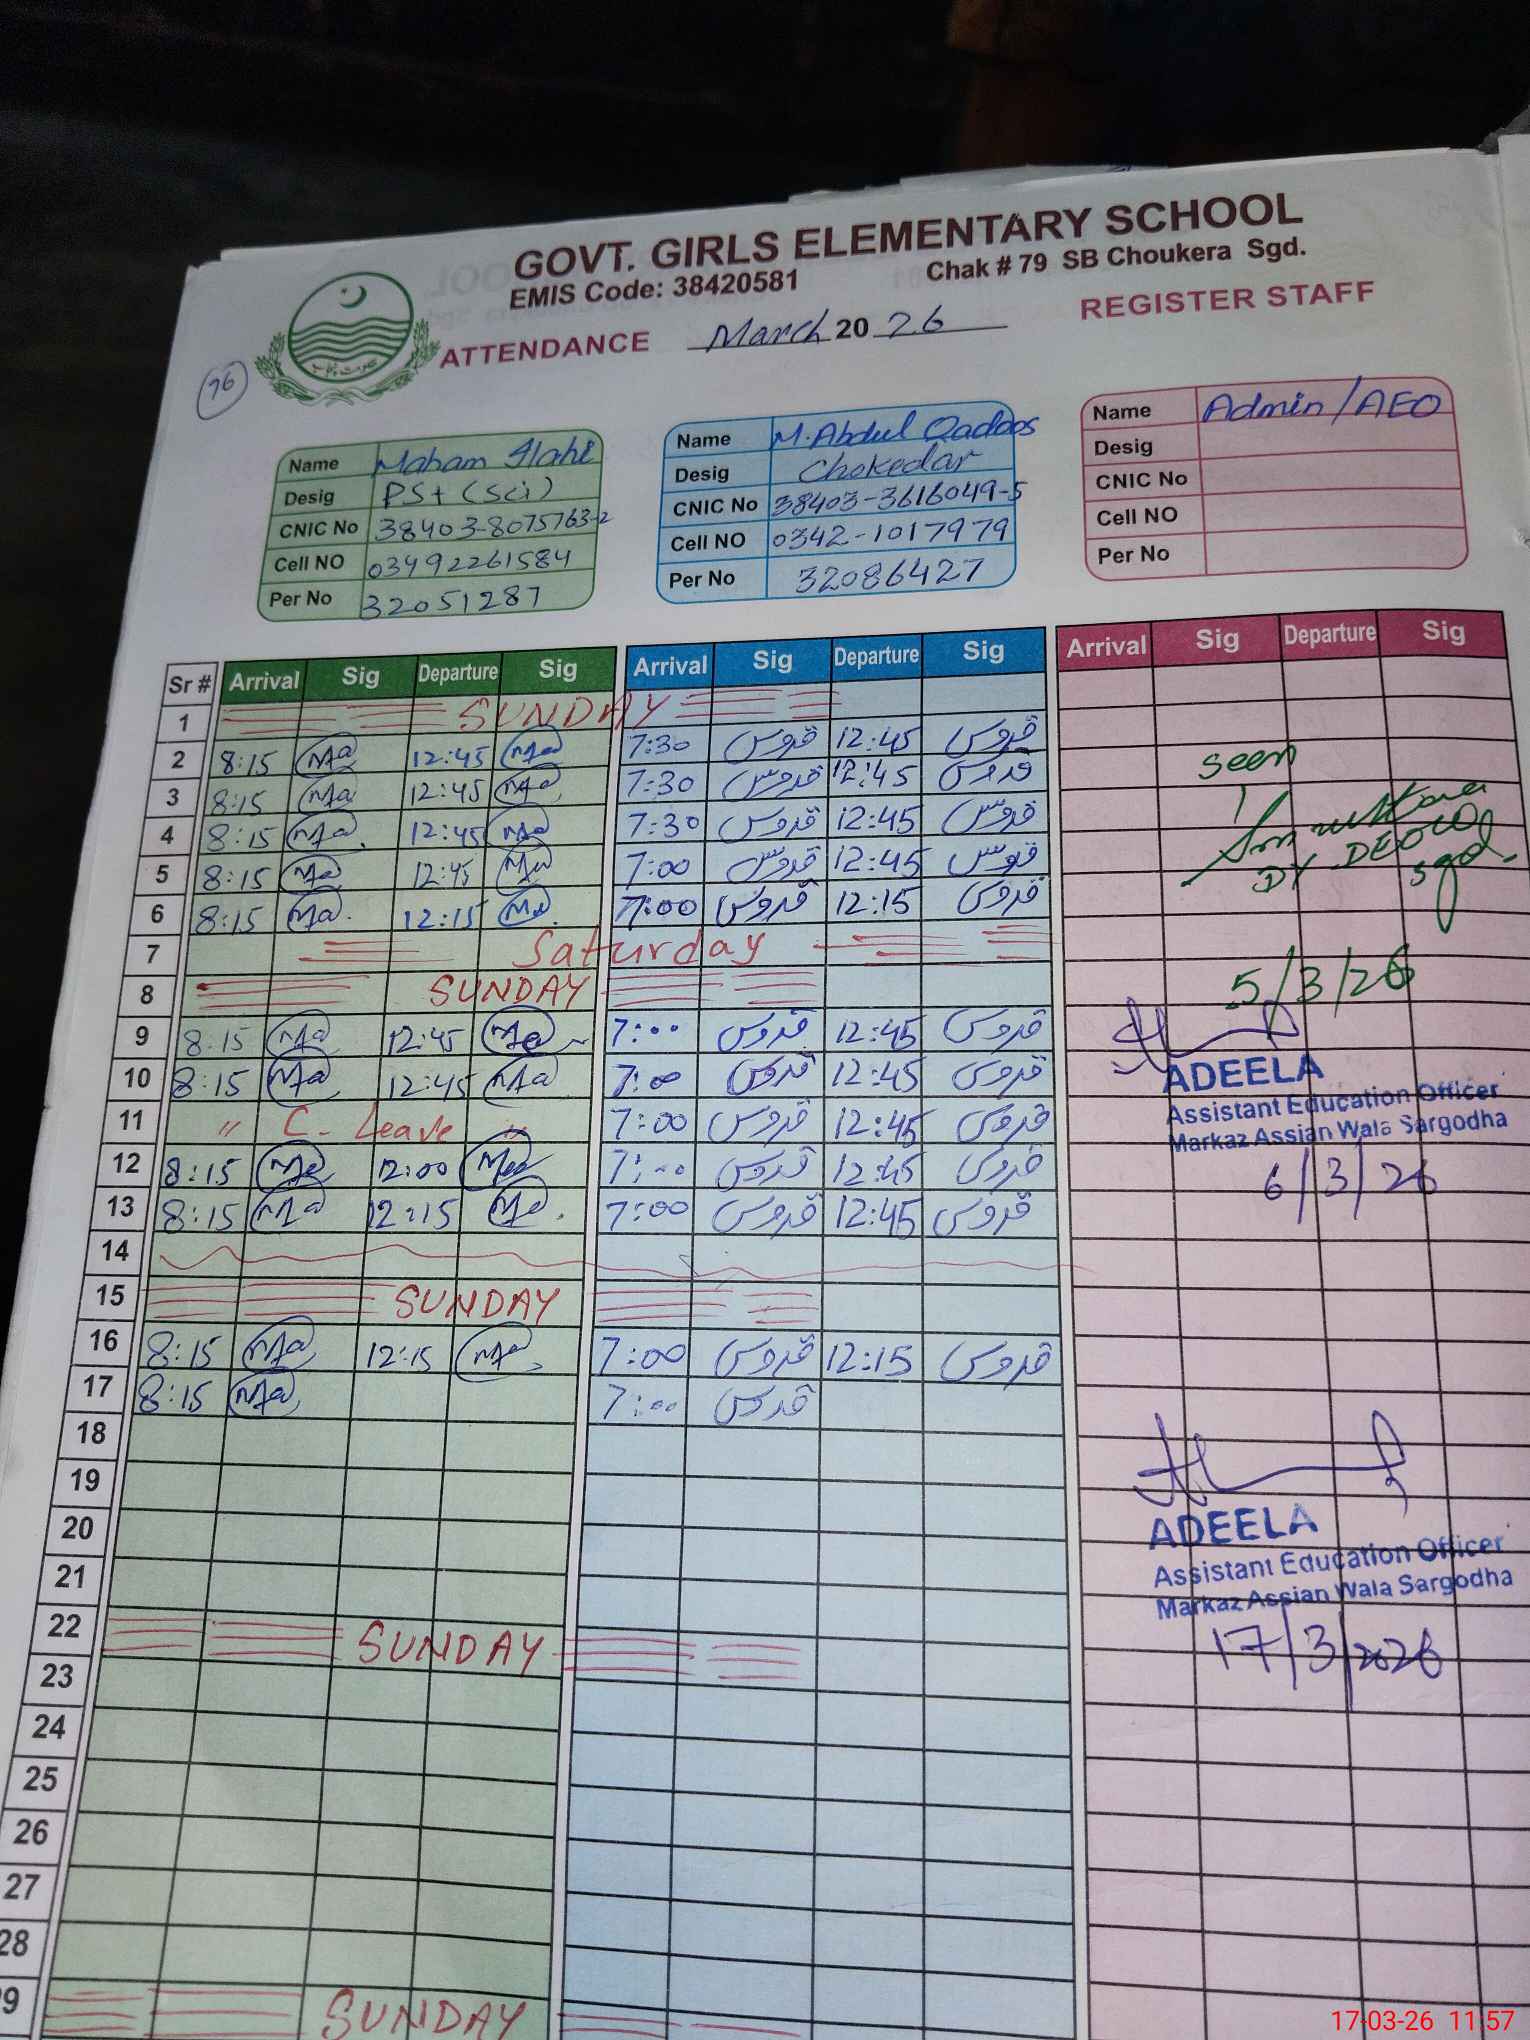 GOVT. GIRLS ELEMENTARY SCHOOL
EMIS Code: 38420581 Chak # 79 SB Choukera Sgd.
ATTENDANCE March 2026 REGISTER STAFF
76
Name Maham Ilahi
Desig PST (Sci)
CNIC No 38403-8075763-2
Cell NO 03492261584
Per No 32051287
Name M.Abdul Qadoos
Desig Chokedar
CNIC No 38403-3616049-5
Cell NO 0342-1017979
Per No 32086427
Name Admin/AEO
Desig
CNIC No
Cell NO
Per No
Sr # Arrival Sig Departure Sig Arrival Sig Departure Sig Arrival Sig Departure Sig
1 SUNDAY
2 8:15 Ma 12:45 Ma 7:30 قدوس 12:45 قدوس
3 8:15 Ma 12:45 Ma 7:30 قدوس 12:45 قدوس
4 8:15 Ma 12:45 Ma 7:30 قدوس 12:45 قدوس
5 8:15 Ma 12:45 Ma 7:00 قدوس 12:45 قدوس
6 8:15 Ma 12:15 Ma 7:00 قدوس 12:15 قدوس
7 Saturday
8 SUNDAY
9 8:15 Ma 12:45 Ma 7:00 قدوس 12:45 قدوس
10 8:15 Ma 12:45 Ma 7:00 قدوس 12:45 قدوس
11 " C. Leave " 7:00 قدوس 12:45 قدوس
12 8:15 Ma 12:00 Ma 7:00 قدوس 12:45 قدوس
13 8:15 Ma 12:15 Ma 7:00 قدوس 12:45 قدوس
14
15 SUNDAY
16 8:15 Ma 12:15 Ma 7:00 قدوس 12:15 قدوس
17 8:15 Ma 7:00 قدوس
18
19
20
21
22 SUNDAY
23
24
25
26
27
28
29 SUNDAY
seen
DY DEO
sgd.
5/3/26
ADEELA
Assistant Education Officer
Markaz Assian Wala Sargodha
6/3/26
ADEELA
Assistant Education Officer
Markaz Assian Wala Sargodha
17/3/2026
17-03-26 11:57